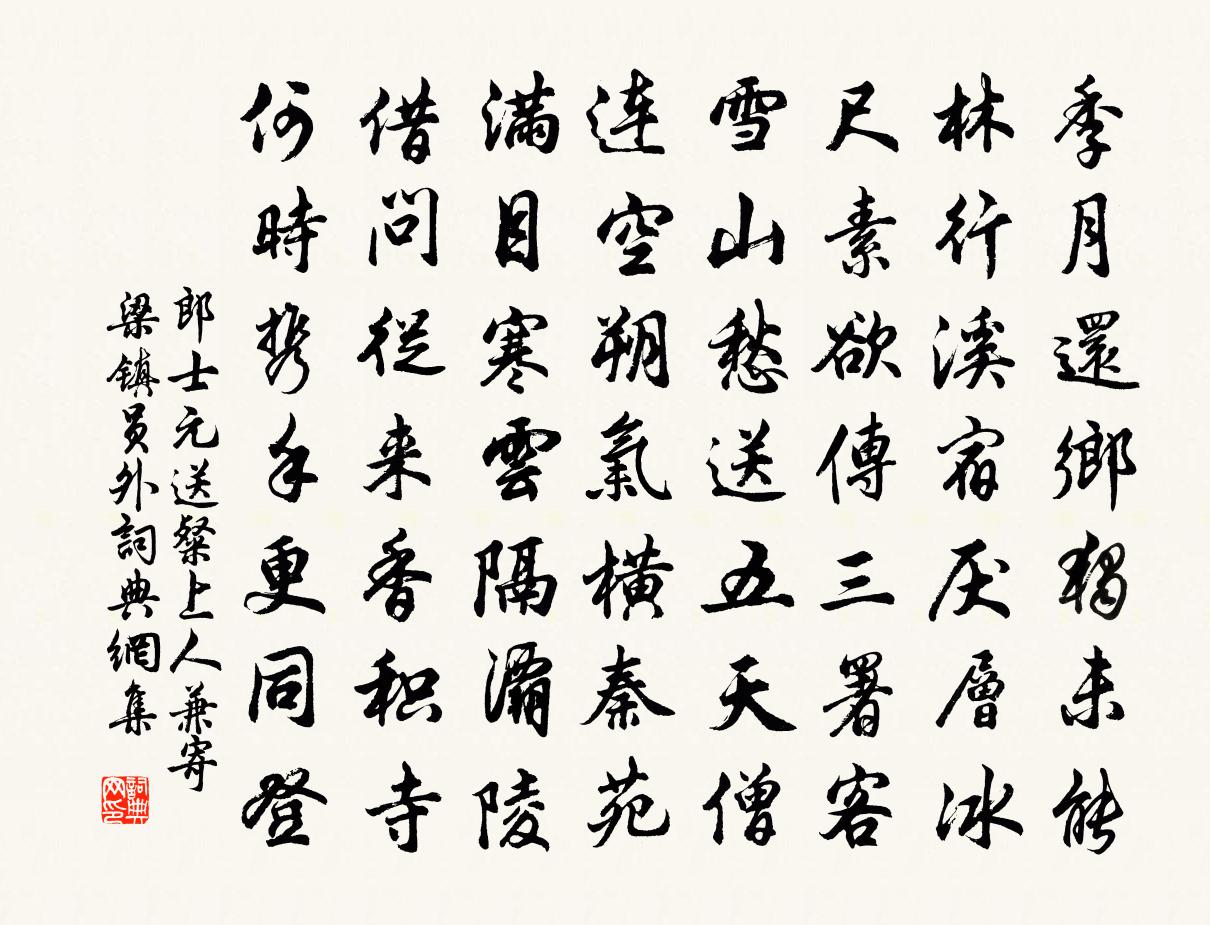 季月還鄉獨未能
林行溪宿厌層冰
尺素欲傳三署客
雪山愁送五天僧
连空朔氣橫秦苑
满目寒雲隔灞陵
借問從来香积寺
何時携手更同登
郎士元送粲上人兼寄
梁镇员外詞典網集
詞典
网印